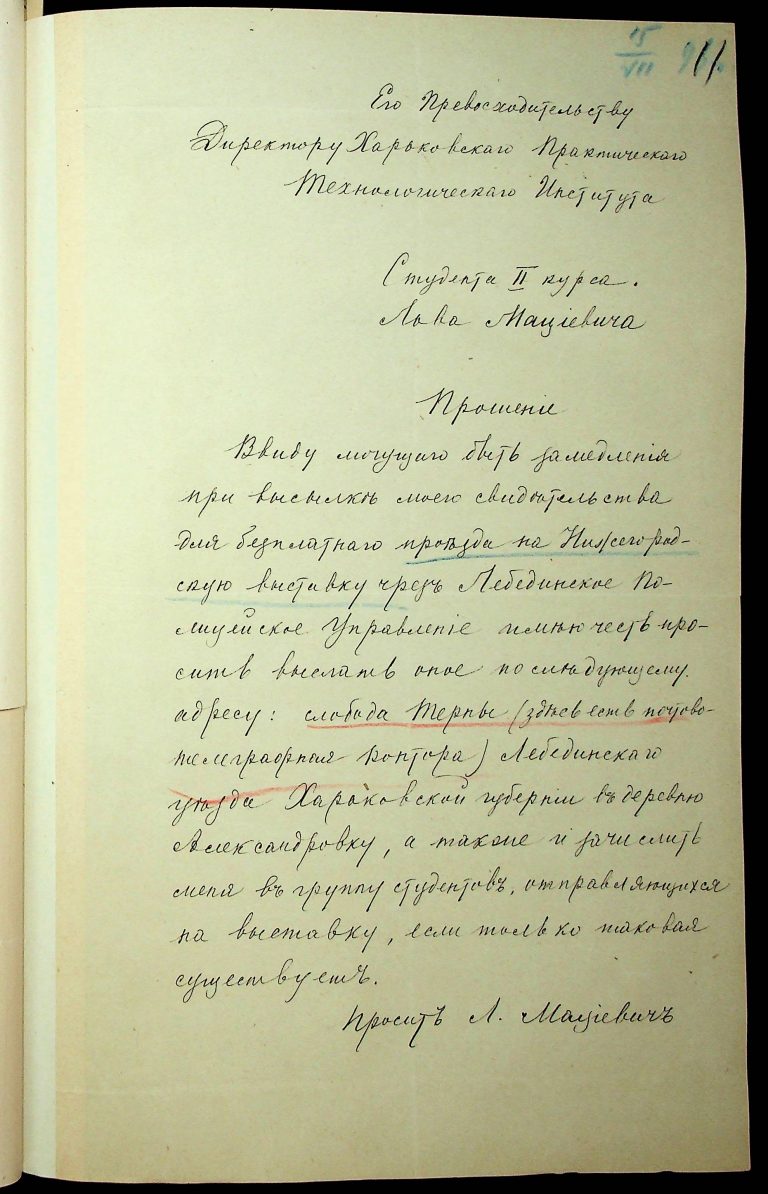 15/VII 96 г.
11
Его Превосходительству
Директору Харьковскаго Практическаго
Технологическаго Института
Студента II курса.
Льва Мацiевича
Прошенiе
Ввиду могущаго быть замедленiя
при высылкѣ моего свидѣтельства
для безплатнаго проѣзда на Нижегород-
скую выставку чрезъ Лебединское По-
лицейское Управленiе имѣю честь про-
сить выслать оное по слѣдующему
адресу: слобода Терны (здѣсь есть почтово-
телеграфная контора) Лебединскаго
уѣзда Харьковской губернiи въ деревню
Александровку, а также и зачислить
меня въ группу студентовъ, отправляющихся
на выставку, если только таковая
существуетъ.
Проситъ Л. Мацiевичъ